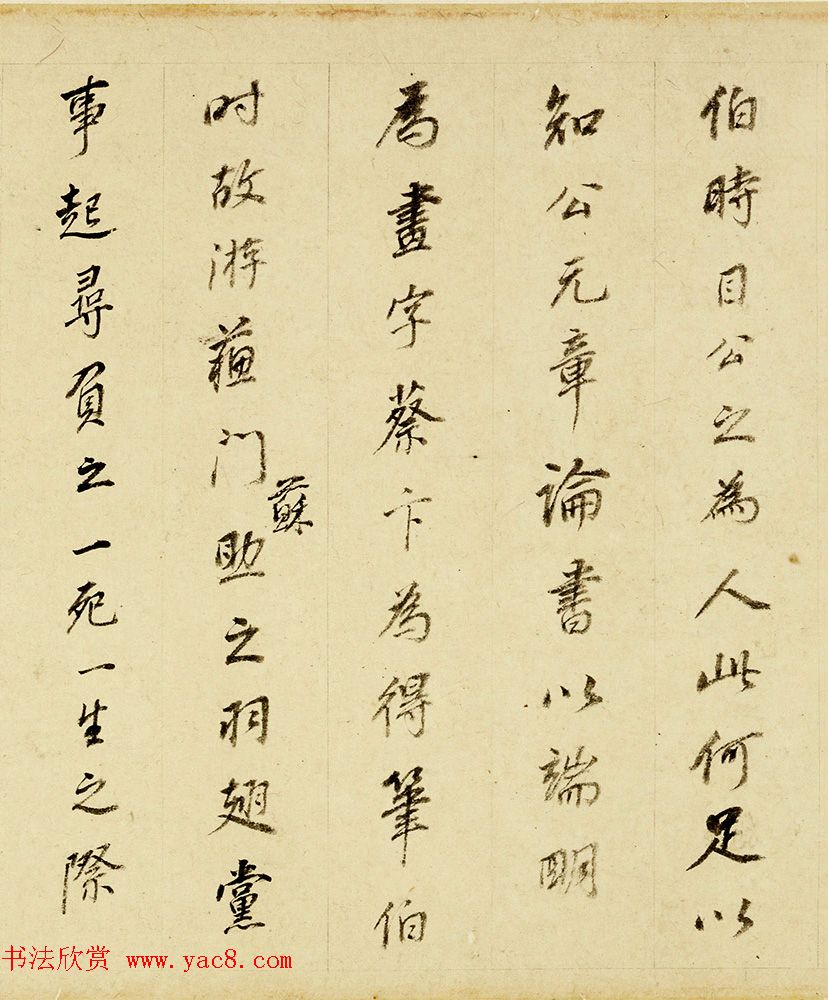 伯時目公之為人此何足以
知公元章論書以端明
為畫字蔡卞為得筆伯
时故游蘓門助之羽翅黨
蘇
事起尋負之一死一生之際
书法欣赏 www.yac8.com